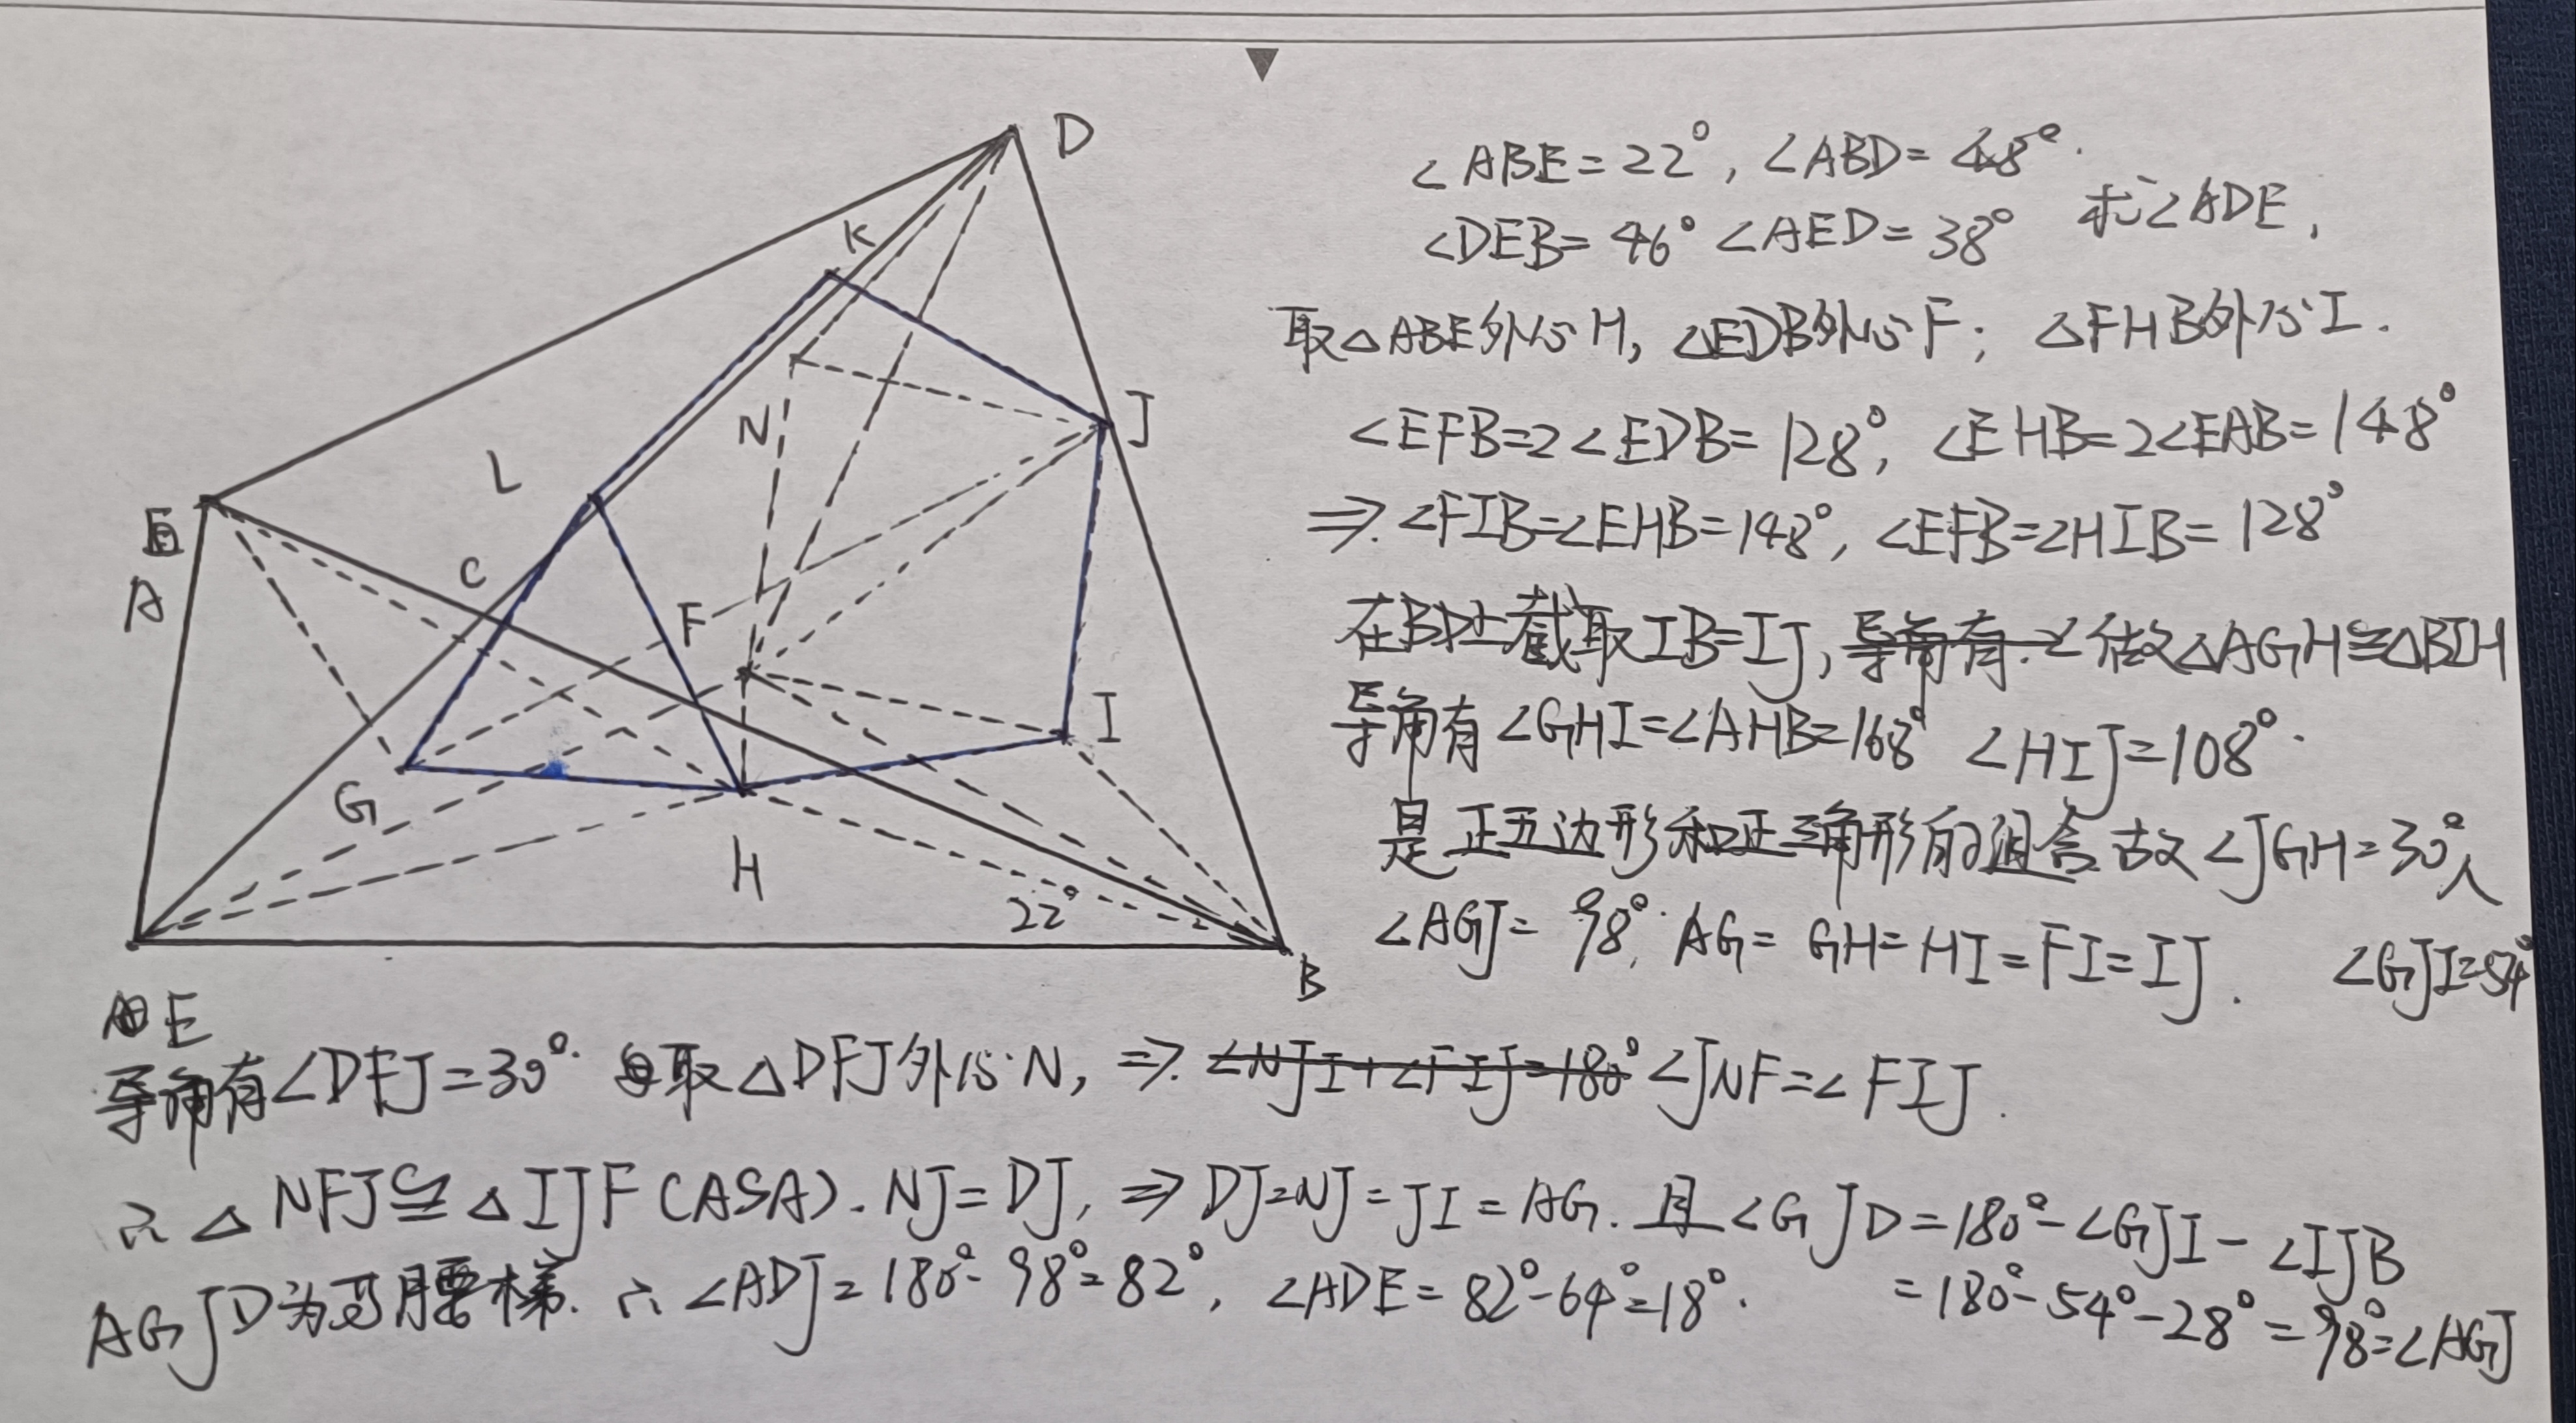 D
K
N
J
L
E
A
C
F
I
G
H
22°
B
E
∠ABE=22°, ∠ABD=48°.
∠DEB=46° ∠AED=38° 求∠ADE.
取△ABE外心H, △EDB外心F; △FHB外心I.
∠EFB=2∠EDB=128°, ∠EHB=2∠EAB=148°
⇒.∠FIB=∠EHB=148°, ∠EFB=∠HIB=128°
在BD上截取IB=IJ, 导角有.∠ 作△AGH≌△BIH
导角有∠GHI=∠AHB=168° ∠HIJ=108°.
是正五边形和正三角形的组合 故∠JGH=30°,
∠AGJ=98°. AG=GH=HI=FI=IJ. ∠GJI=54°
导角有∠DFJ=30°. 取△DFJ外心N, ⇒. ∠NJI+∠FIJ=180° ∠JNF=∠FIJ.
∴△NFJ≌△IJF(ASA). NJ=DJ, ⇒DJ=NJ=JI=AG. 且∠GJD=180°-∠GJI-∠IJB
=180°-54°-28°=98°=∠AGJ
AGJD为等腰梯. ∴∠ADJ=180°-98°=82°, ∠ADE=82°-64°=18°.